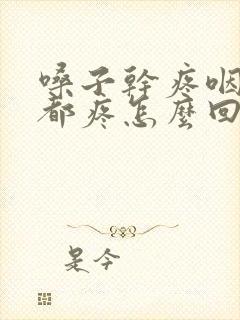 嗓子幹疼咽
都疼怎麼回
是今